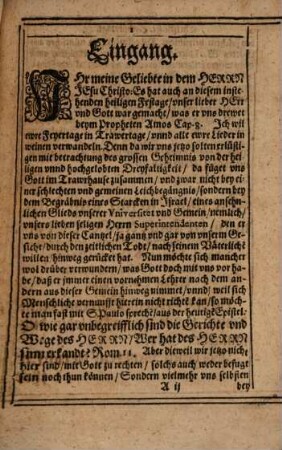 Eingang.
IHr meine Geliebte in dem HERRN
JEsu Christo: Es hat auch an diesem inste-
henden heiligen Festage/ unser lieber HErr
und Gott war gemacht/ was er uns drewet
beym Propheten Amos Cap.
Ich wil
ewre Feyertage in Trawertage/ unnd alle ewre Lieder in
weinen verwandeln. Denn da wir uns jetzo solten erlüsti-
gen mit betrachtung des grossen Geheimnis von der hei-
ligen unnd hochgelobten Dreyfaltigkeit/ da füget uns
Gott im Trawrhause zusammen/ und zwar nicht bey ei-
ner schlechten und gemeinen Leichbegängnis/ sondern bey
dem Begräbnis eines Starcken in Israel/ eines ansehn-
lichen Glieds unserer Vniversitet und Gemein/ nemlich/
unsers lieben seligen Herrn Superintendenten/ den er
uns von dieser Cantzel/ ja gantz und gar von unserm Ge-
sichte/ durch den zeitlichen Todt/ nach seinem Väterliche
willen/ hinweg gerücket hat. Nun möchte sich mancher
wol drüber verwundern/ was Gott doch mit uns vor ha-
be/ daß er immer einen vornehmen Lehrer nach dem an-
dern aus dieser Gemein hinweg nimmet/ unnd/ weil sich
Menschliche vernunfft hierein nicht richtē kan/ so möch-
te man fast mit S. Paulo sprechē/ aus der heutigē Epistel.
O wie gar unbegreifflich sind die Gerichte und
Wege des HERRN/ Wer hat des HERRN
sinn erkandt? Rom. 11. Aber dieweil wir jetzo nicht
hier sind/ mit Gott zu rechten/ solchs auch weder befugt
sein noch thun können/ Sondern vielmehr uns selbsten
A ij bey